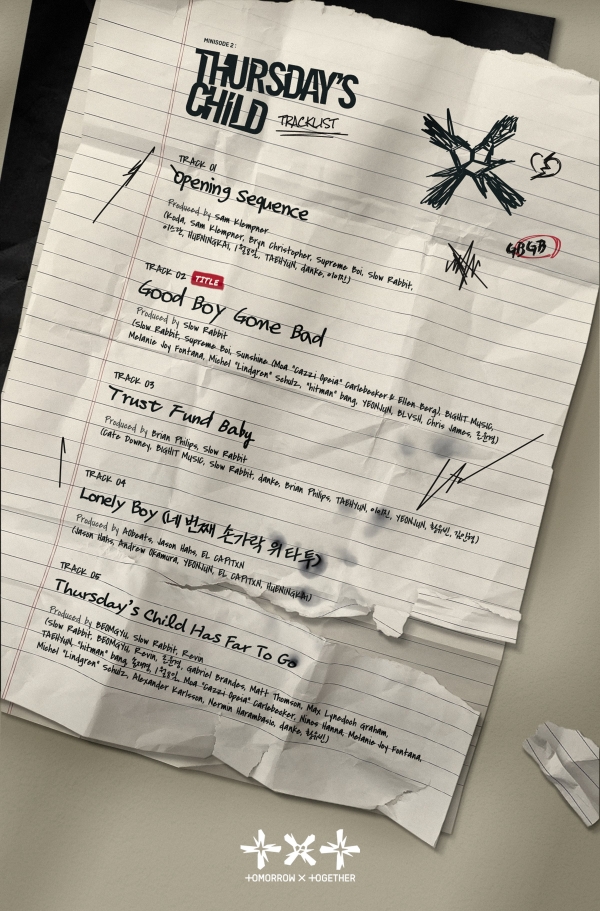 MINISODE 2:
THURSDAY'S
CHILD
TRACKLIST
GBGB
TRACK 01
Opening Sequence
Produced by Sam Klempner
(Koda, Sam Klempner, Bryn Christopher, Supreme Boi, Slow Rabbit,
이스란, HUENINGKAI, 1월8일, TAEHYUN, danke, 이이진)
TRACK 02 TITLE
Good Boy Gone Bad
Produced by Slow Rabbit
(Slow Rabbit, Supreme Boi, Sunshine (Moa "Cazzi Opeia" Carlebecker & Ellen Berg), BIGHIT MUSIC,
Melanie Joy Fontana, Michel "Lindgren" Schulz, "hitman" bang, YEONJUN, BLVSH, Chris James,
TRACK 03
Trust Fund Baby
Produced by Brian Philips, Slow Rabbit
(Cate Downey, BIGHIT MUSIC, Slow Rabbit, danke, Brian Philips, TAEHYUN, 이이진, YEONJUN, 황유빈,
TRACK 04
Lonely Boy (네 번째 손가락 위 타투)
Produced by AObeats, Jason Hahs, EL CAPITXN
(Jason Hahs, Andrew Okamura, YEONJUN, EL CAPITXN, HUENINGKAI)
TRACK 05
Thursday's Child Has Far To Go
Produced by BEOMGYU, Slow Rabbit, Revin
(Slow Rabbit, BEOMGYU, Revin, Gabriel Brandes, Matt Thomson, Max Lynedoch Graham,
TAEHYUN, "hitman" bang, 1월8일, Moa "Cazzi Opeia" Carlebecker, Ninos Hanna, Melanie Joy Fontana,
Michel "Lindgren" Schulz, Alexander Karlsson, Nermin Harambasic, danke, 황유빈)
TOMORROW X TOGETHER